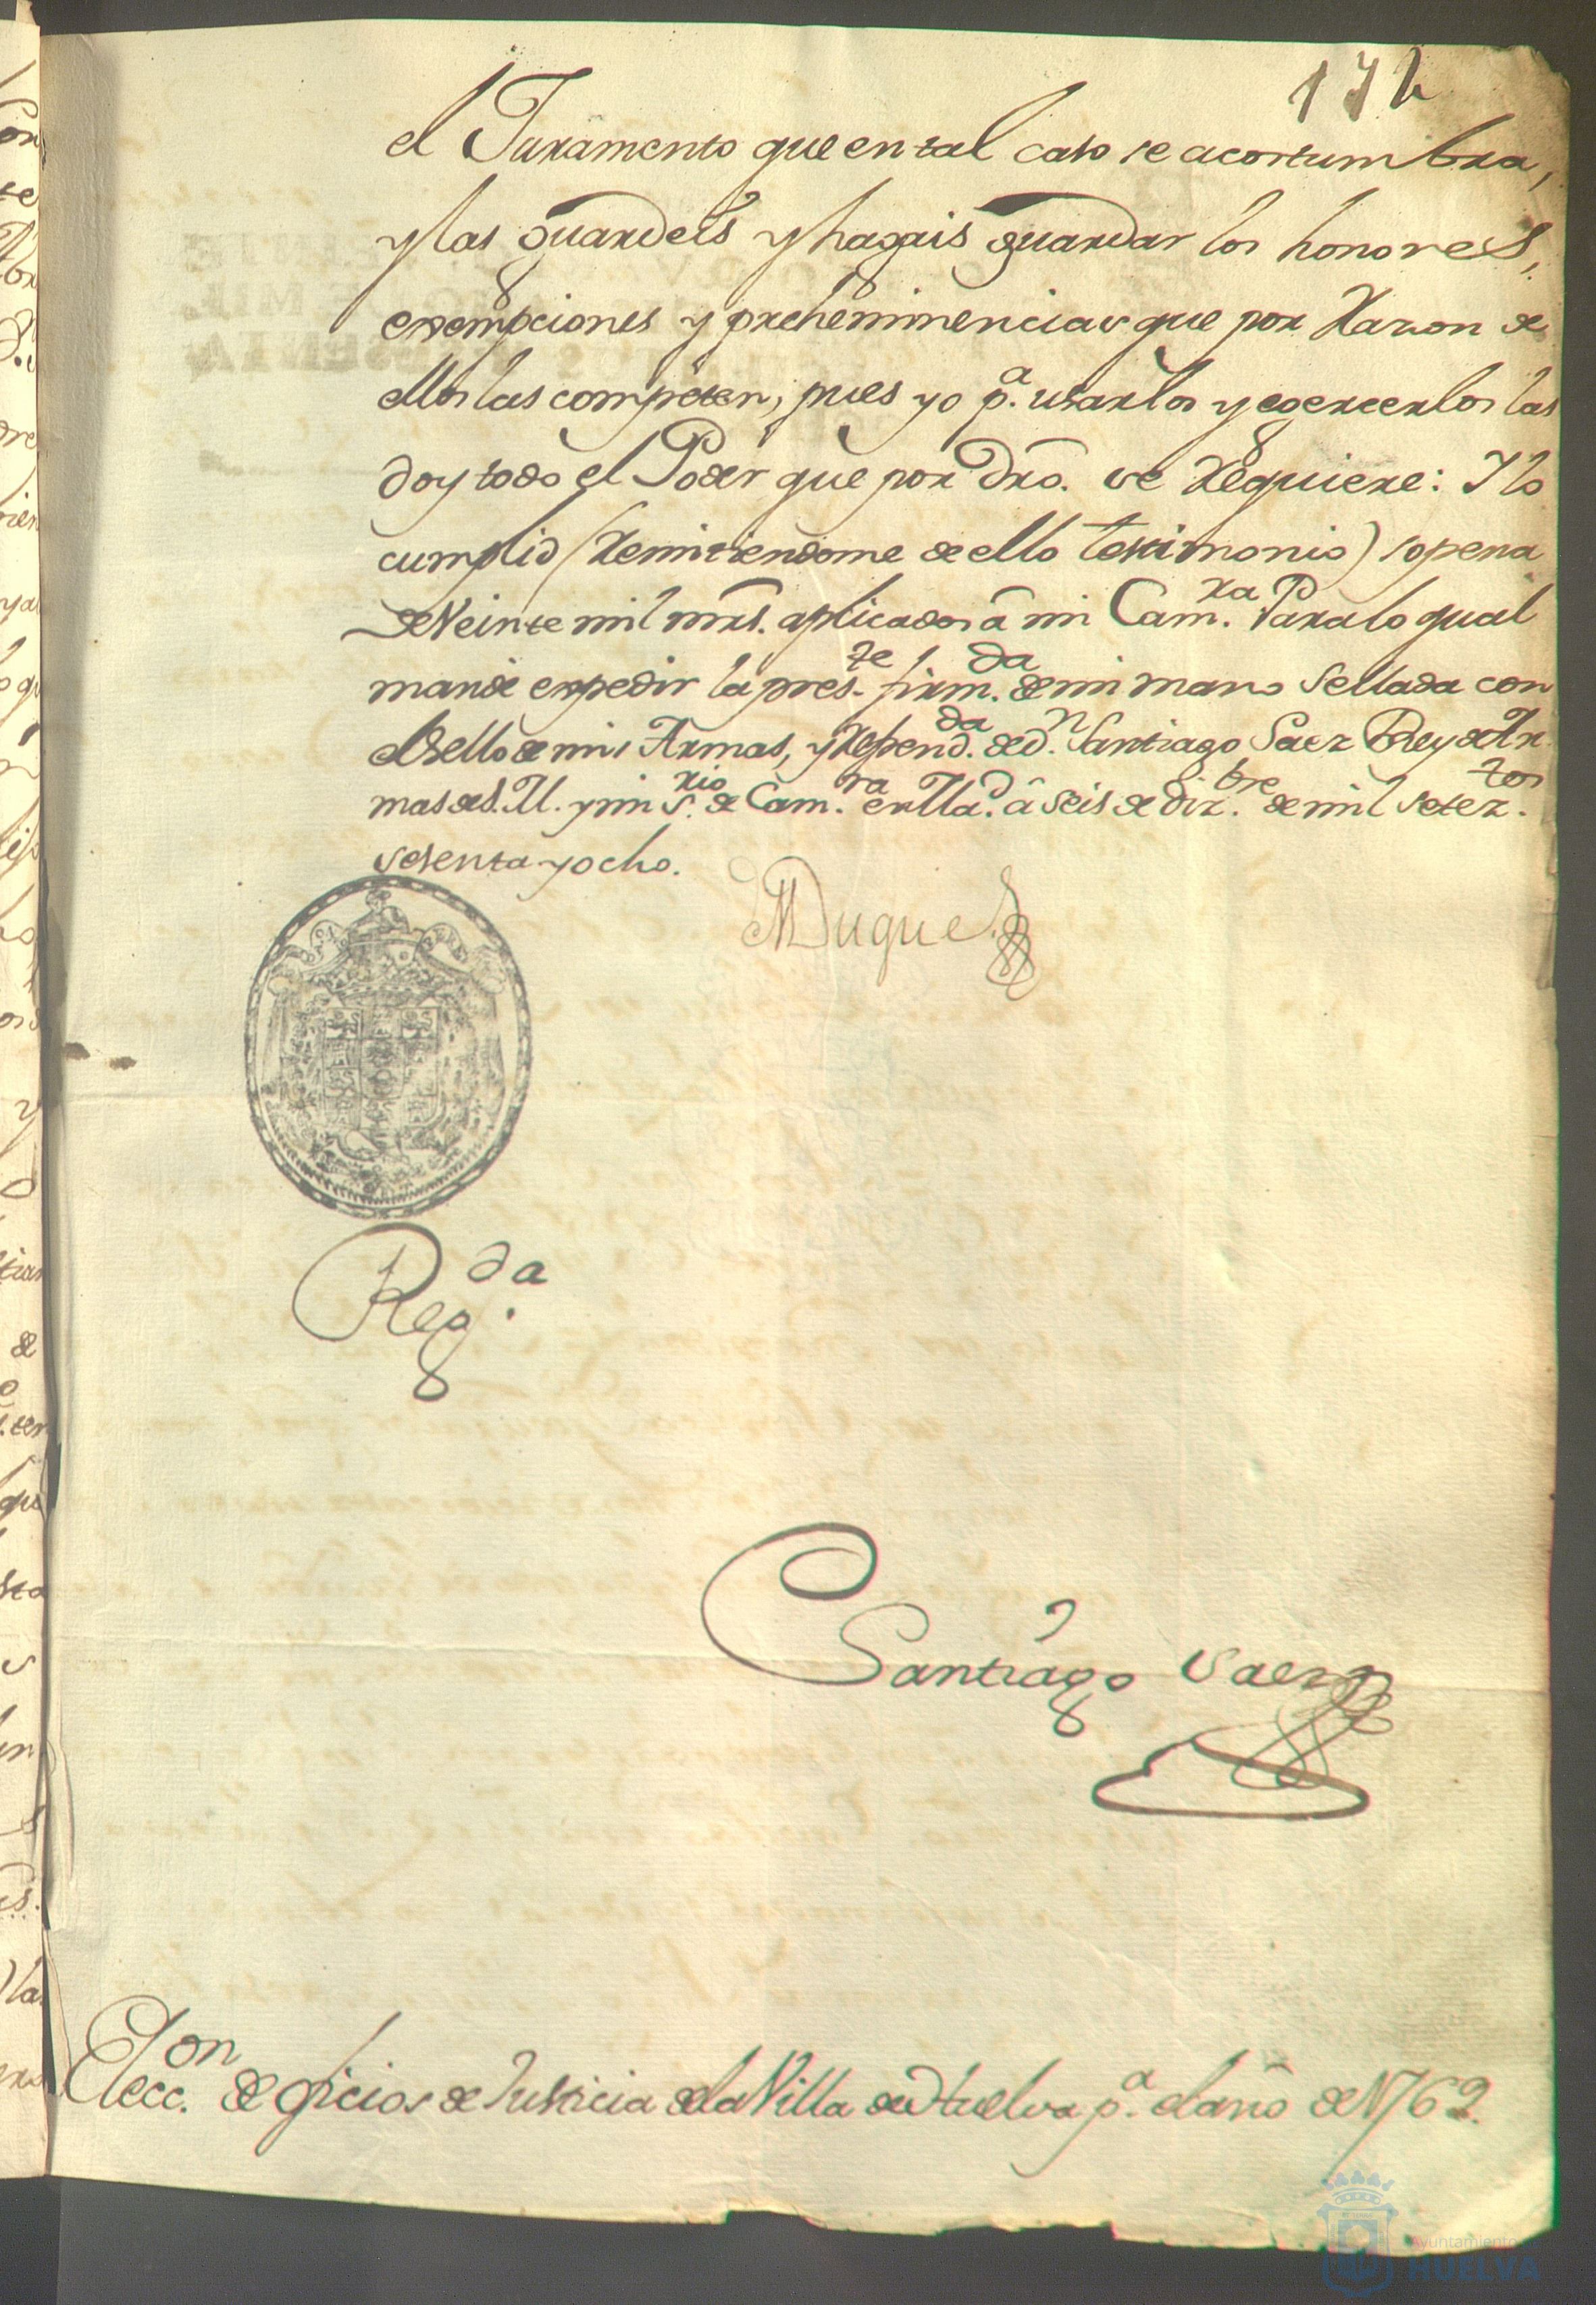 172
el Juramento que en tal caso se acostumbra,
y las guardeis y hagais guardar los honores,
exempciones y preheminencias que por Razon de
ellos las competen, pues yo p.ª usarlos y egercerlos las
doy todo el Poder que por Dro. se Requiere: Y lo
cumplid (Remitiendome de ello testimonio) sopena
de Veinte mil mrs. aplicados â mi Cam.ra Para lo qual
mandé expedir la pres.te firm.da de mi mano sellada con
el sello de mis Armas, y Refrend.da de d.n Santiago Saez Rey de Ar
mas de S. M. y mi S.rio de Cam.ra en Md. â seis de Diz.bre de mil setez.tos
sesenta y ocho.
El Duque
Reg.da
Santiago Saez
Elecc.on de oficios de Justicia de la Villa de Huelva p.ª el año de 1769.
Ayuntamiento
HUELVA